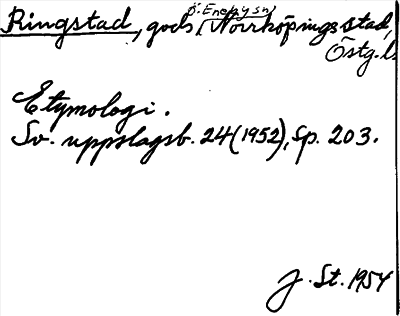 Ringstad, gods, Ö. Eneby sn, Norrköpings stad,
Östg.l.
Etymologi.
Sv. uppslagsb. 24 (1952), sp. 203.
J. St. 1954